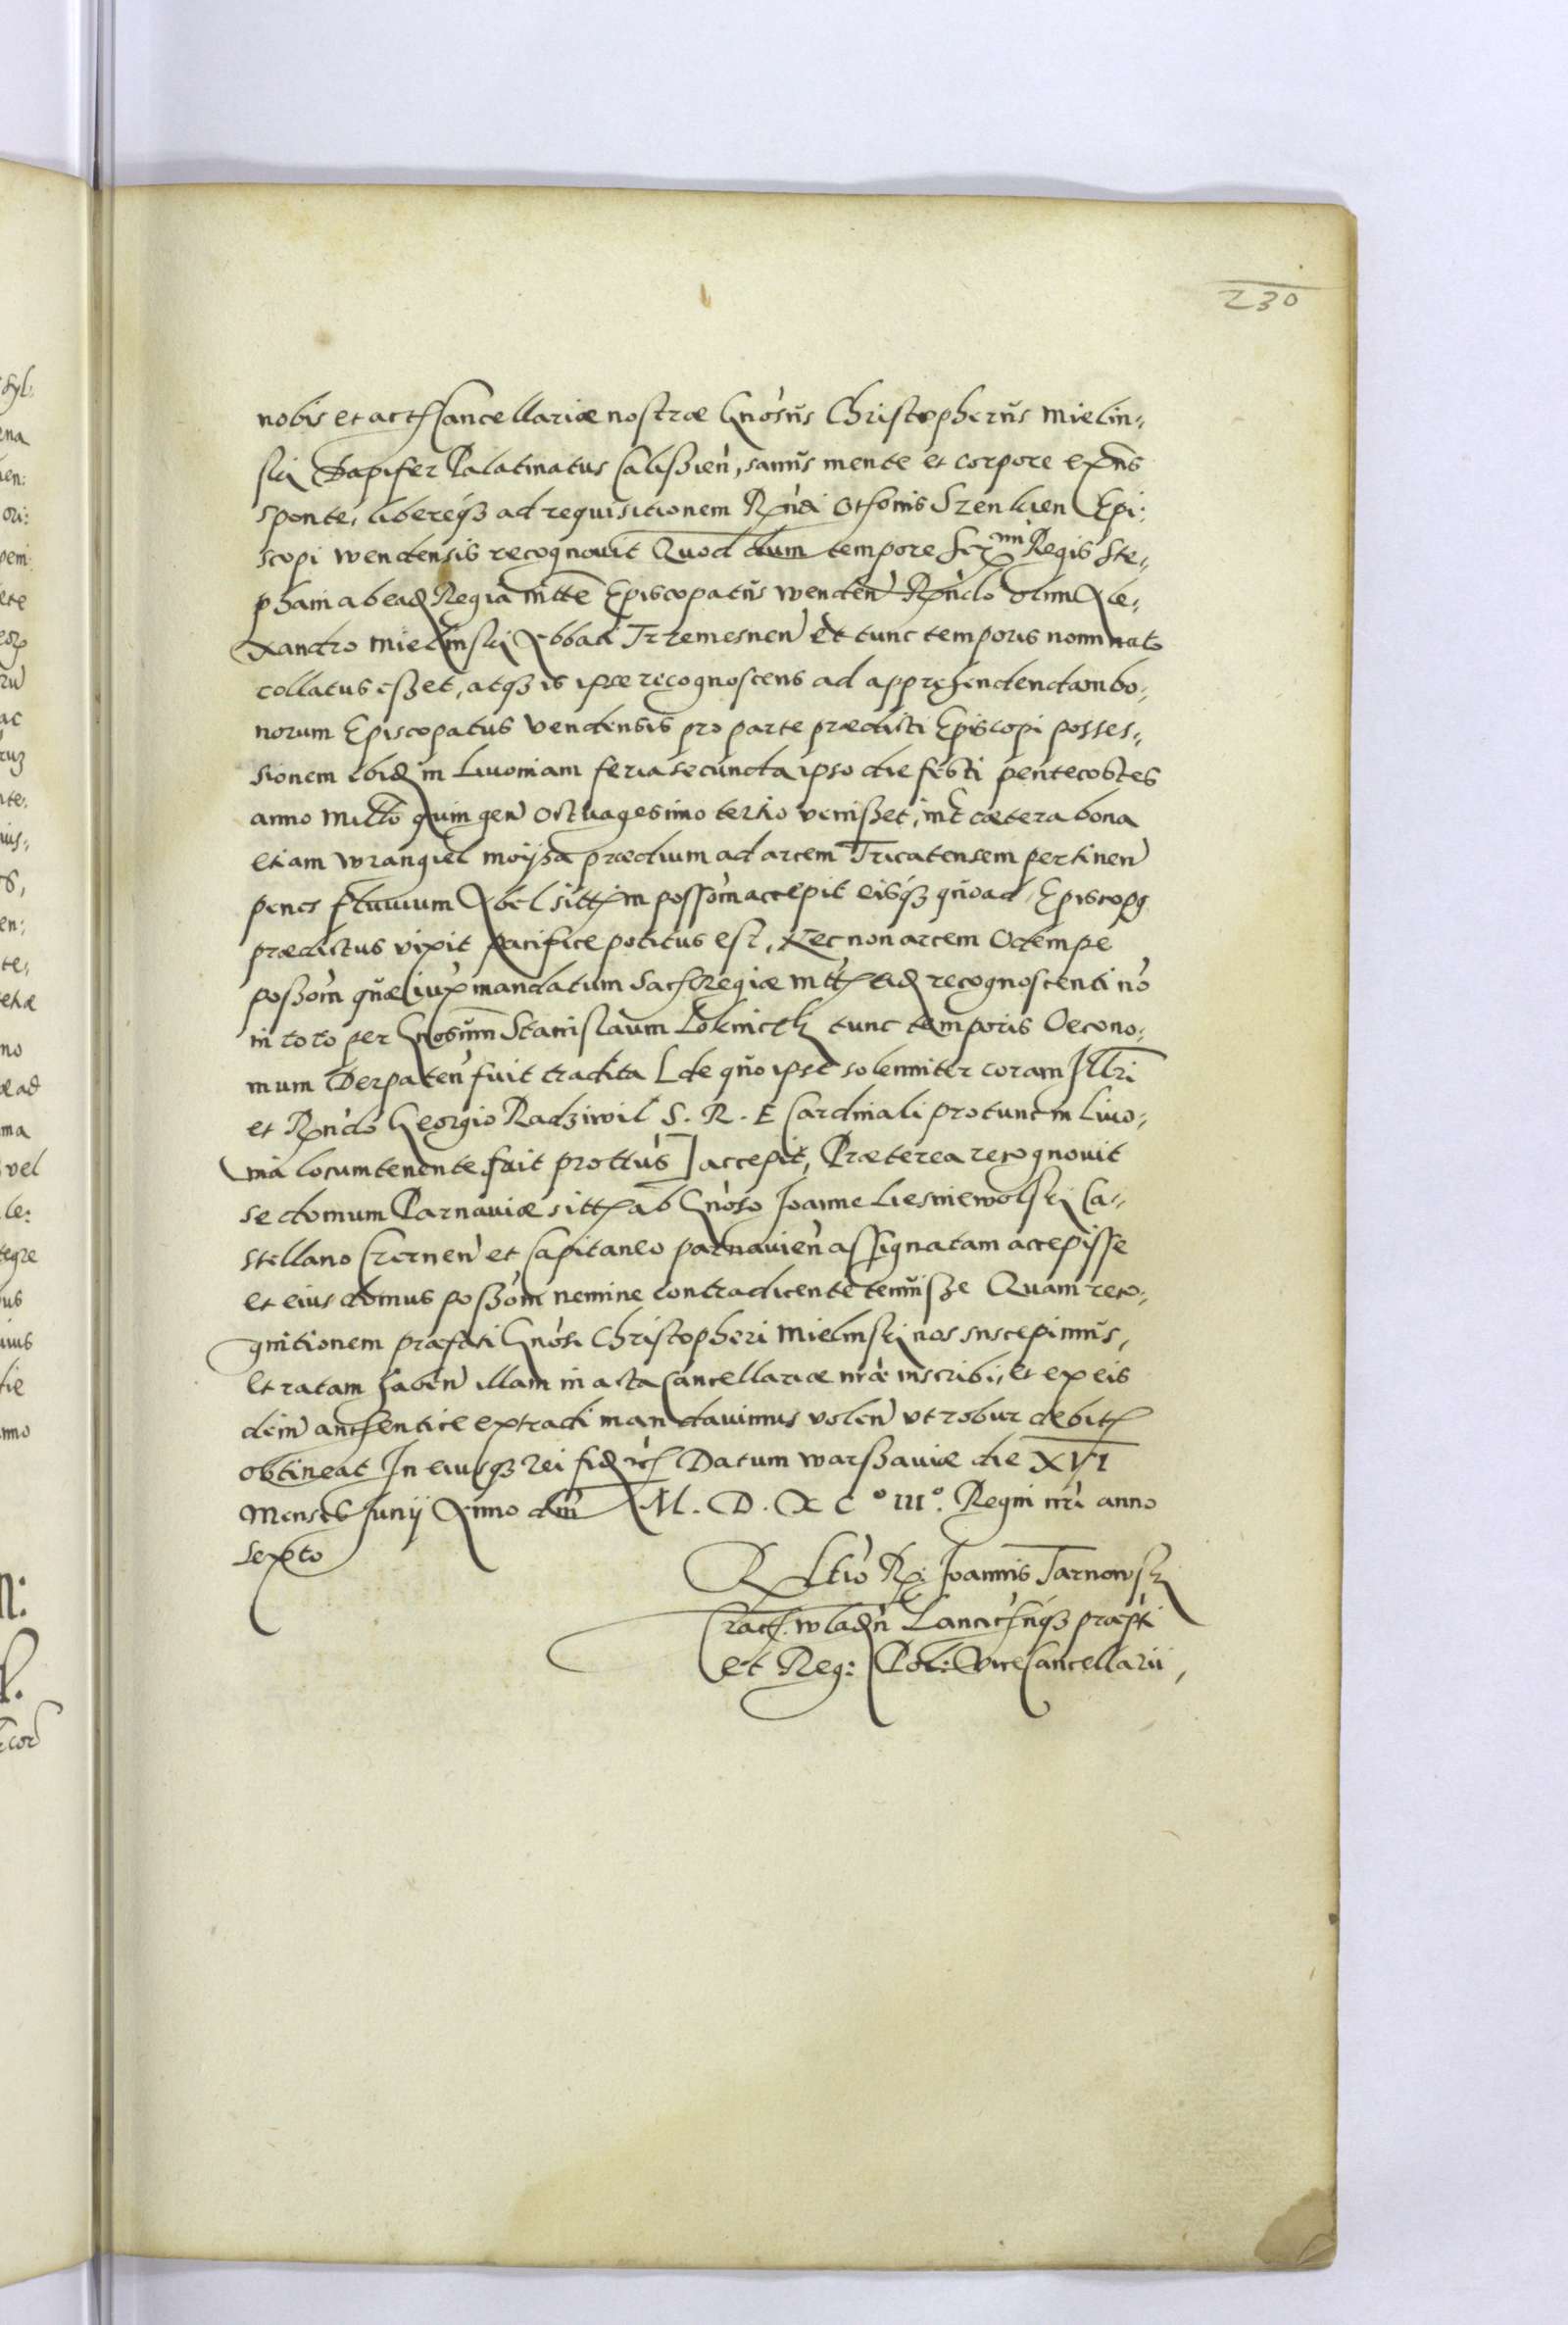 230
nobis et act Cancellariæ nostræ Gnosus Christopherus Mielin„
ski Dapifer Palatinatus Calissien, sanus mente et corpore exns
sponte, libereqз ad requisitionem Rndi Othonis Szenkien Epi:
scopi Wendensis recognovit Quod dum tempore Ser mi Regis Ste„
phani ab ead Regia mtte Episcopatus Wenden Rndo olim Ale„
xandro Mielinski Abbati Trzemesnen et tunc temporis nominato
collatus esset, atqз is ipse recognoscens ad apprehendendam bo„
norum Episcopatus Vendensis pro parte prædicti Episcopi posses„
sionem ibid in Livoniam feria secunda ipso die festi pentecostes
anno millo quingen octuagesimo tertio venisset, int cætera bona
etiam Wrangiel moijsa prædium ad arcem Tricatensem pertinen
penes fluuium Abel sitt in possom accepit eisqз quoad Episcopg
prædictus vixit pacifice potitus est, Nec non arcem Odempe
possom quæ iux mandatum Sac Regiæ mtt eid recognoscenti no
in toto per Gnosum Stanislaum Lokniczk tunc temporis Oecono„
mum Derpaten fuit tradita [de quo ipse solenniter coram Illri
et Rndo Georgio Radziwil S. R. E Cardinali pro tunc in Livo„
nia locumtenente fuit prottus] accepit, Præterea recognovit
se domum Parnaviæ sitt ab Gnoso Joanne Liesniewolski Ca„
stellano Czernen et Capitaneo parnavien assignatam accepisse
et eius domus possom nemine contradicente tenuisse Quam reco„
gnitionem præfati Gnosi Christopheri Mielinski nos suscepimus,
et ratam haben illam in acta Cancellariæ nræ inscribi, et ex eis
dem authentice extradi mandavimus volen vt robur debit
obtineat In cuiusqз rei fid etc Datum Warssaviæ die XVI
Mensis Junij Anno dni M. D. X C ° III °. Regni nri anno
Sexto
Rltio R: Joannis Tarnowsk
Crac. Wladn Lancicnqз præpti
et Reg: Pol: ViceCancellarii,